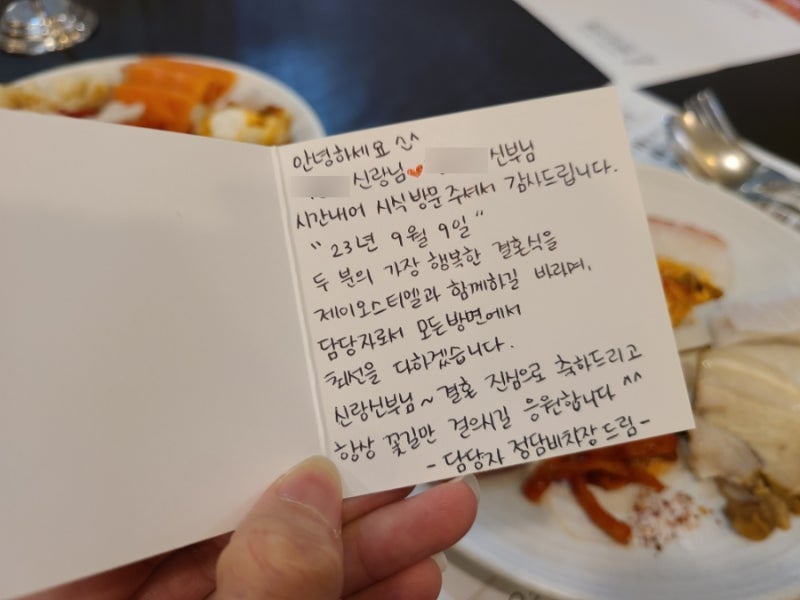 안녕하세요 ^^
신랑님♥ 신부님
시간내어 시식 방문 주셔서 감사드립니다.
"23년 9월 9일"
두 분의 가장 행복한 결혼식을
제이오스티엘과 함께하길 바라며,
담당자로서 모든방면에서
최선을 다하겠습니다.
신랑신부님~ 결혼 진심으로 축하드리고
항상 꽃길만 걸으시길 응원합니다 ^^
- 담당자 정담비차장 드림 -